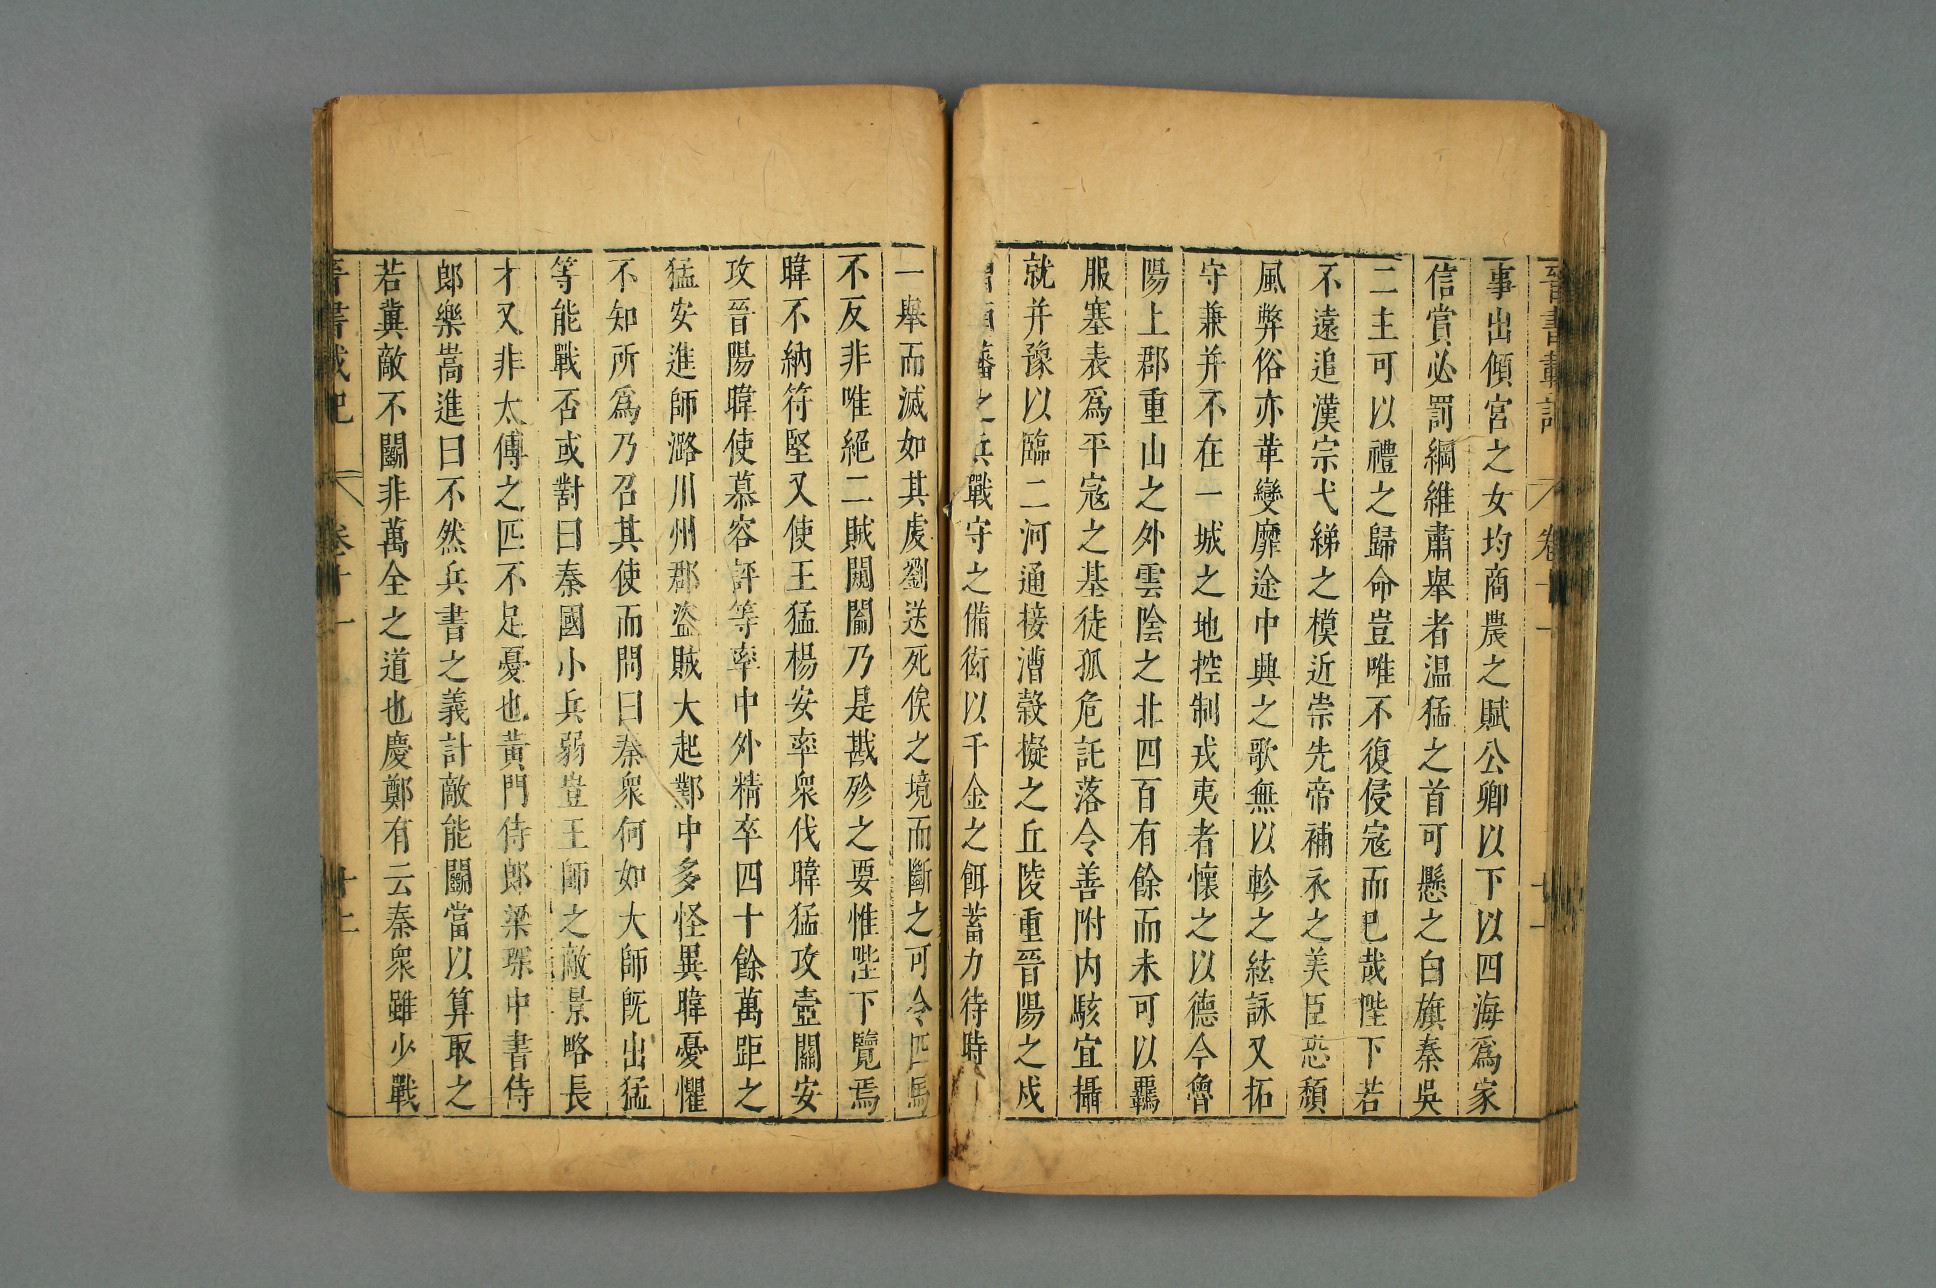 晉書載記 卷十一
事出傾宮之女均商農之賦公卿以下以四海爲家
信賞必罰綱維肅舉者温猛之首可懸之白旗秦吳
二主可以禮之歸命豈唯不復侵寇而已哉陛下若
不遠追漢宗弋綈之模近崇先帝補衣之美臣恐頹
風弊俗亦革變靡途中興之歌無以軫之絃詠又拓
守兼并不在一城之地控制戎夷者懷之以德今魯
陽上郡重山之外雲陰之北四百有餘而未可以羈
服塞表爲平寇之基徒孤危託落令善附内駭宜攝
就并豫以臨二河通接漕穀擬之丘陵重晉陽之戍
藩之兵戰守之備衒以千金之餌蓄力待時
一舉而滅如其虔劉送死俟之境而斷之可令匹馬
不反非唯絕二賊闚䦱乃是戡殄之要惟陛下覽焉
暐不納苻堅又使王猛楊安率衆伐暐猛攻壺關安
攻晉陽暐使慕容評等率中外精卒四十餘萬距之
猛安進師潞川州郡盜賊大起鄴中多怪異暐憂懼
不知所爲乃召其使而問曰秦衆何如大師既出猛
等能戰否或對曰秦國小兵弱豈王師之敵景略長
才又非太傅之匹不足憂也黄門侍郎梁琛中書侍
郎樂嵩進曰不然兵書之義計敵能鬭當以算取之
若冀敵不鬭非萬全之道也慶鄭有云秦衆雖少戰
晉書載記 卷十一